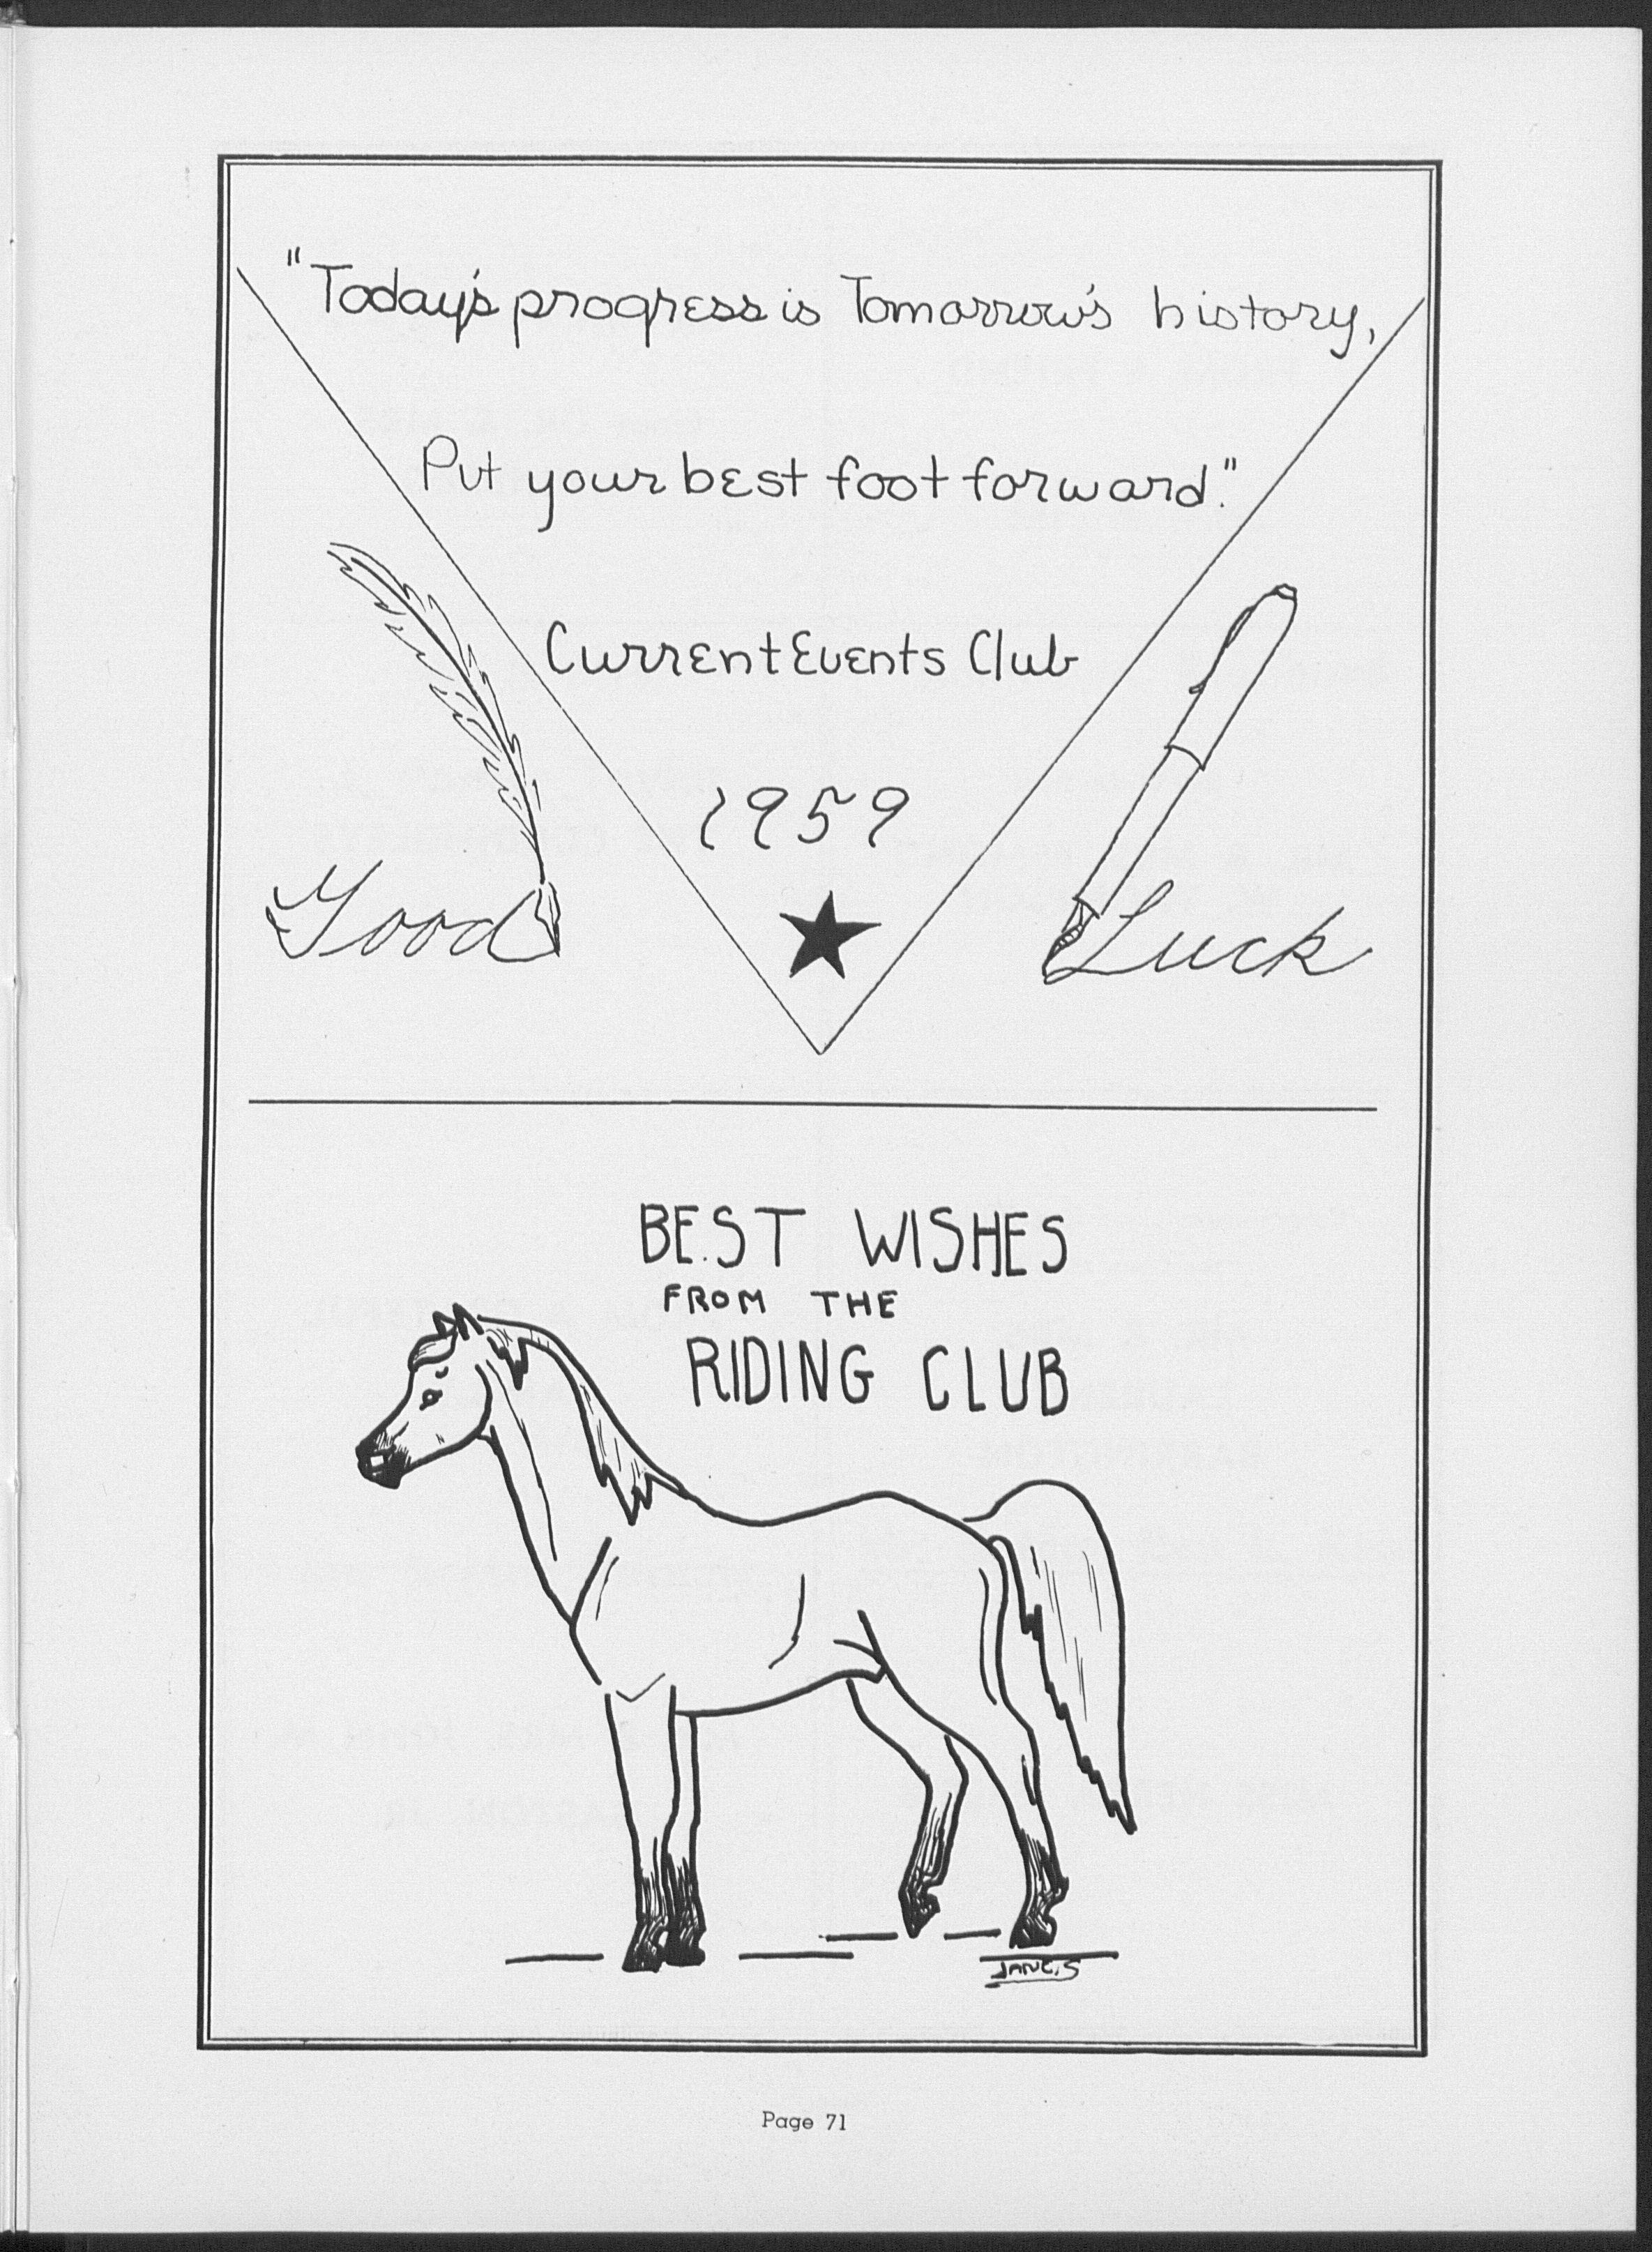 "Today's progress is Tomorrow's history,
Put your best foot forward."
Current Events Club
1959
Good Luck
BEST WISHES
FROM THE
RIDING CLUB
JANE.S
Page 71